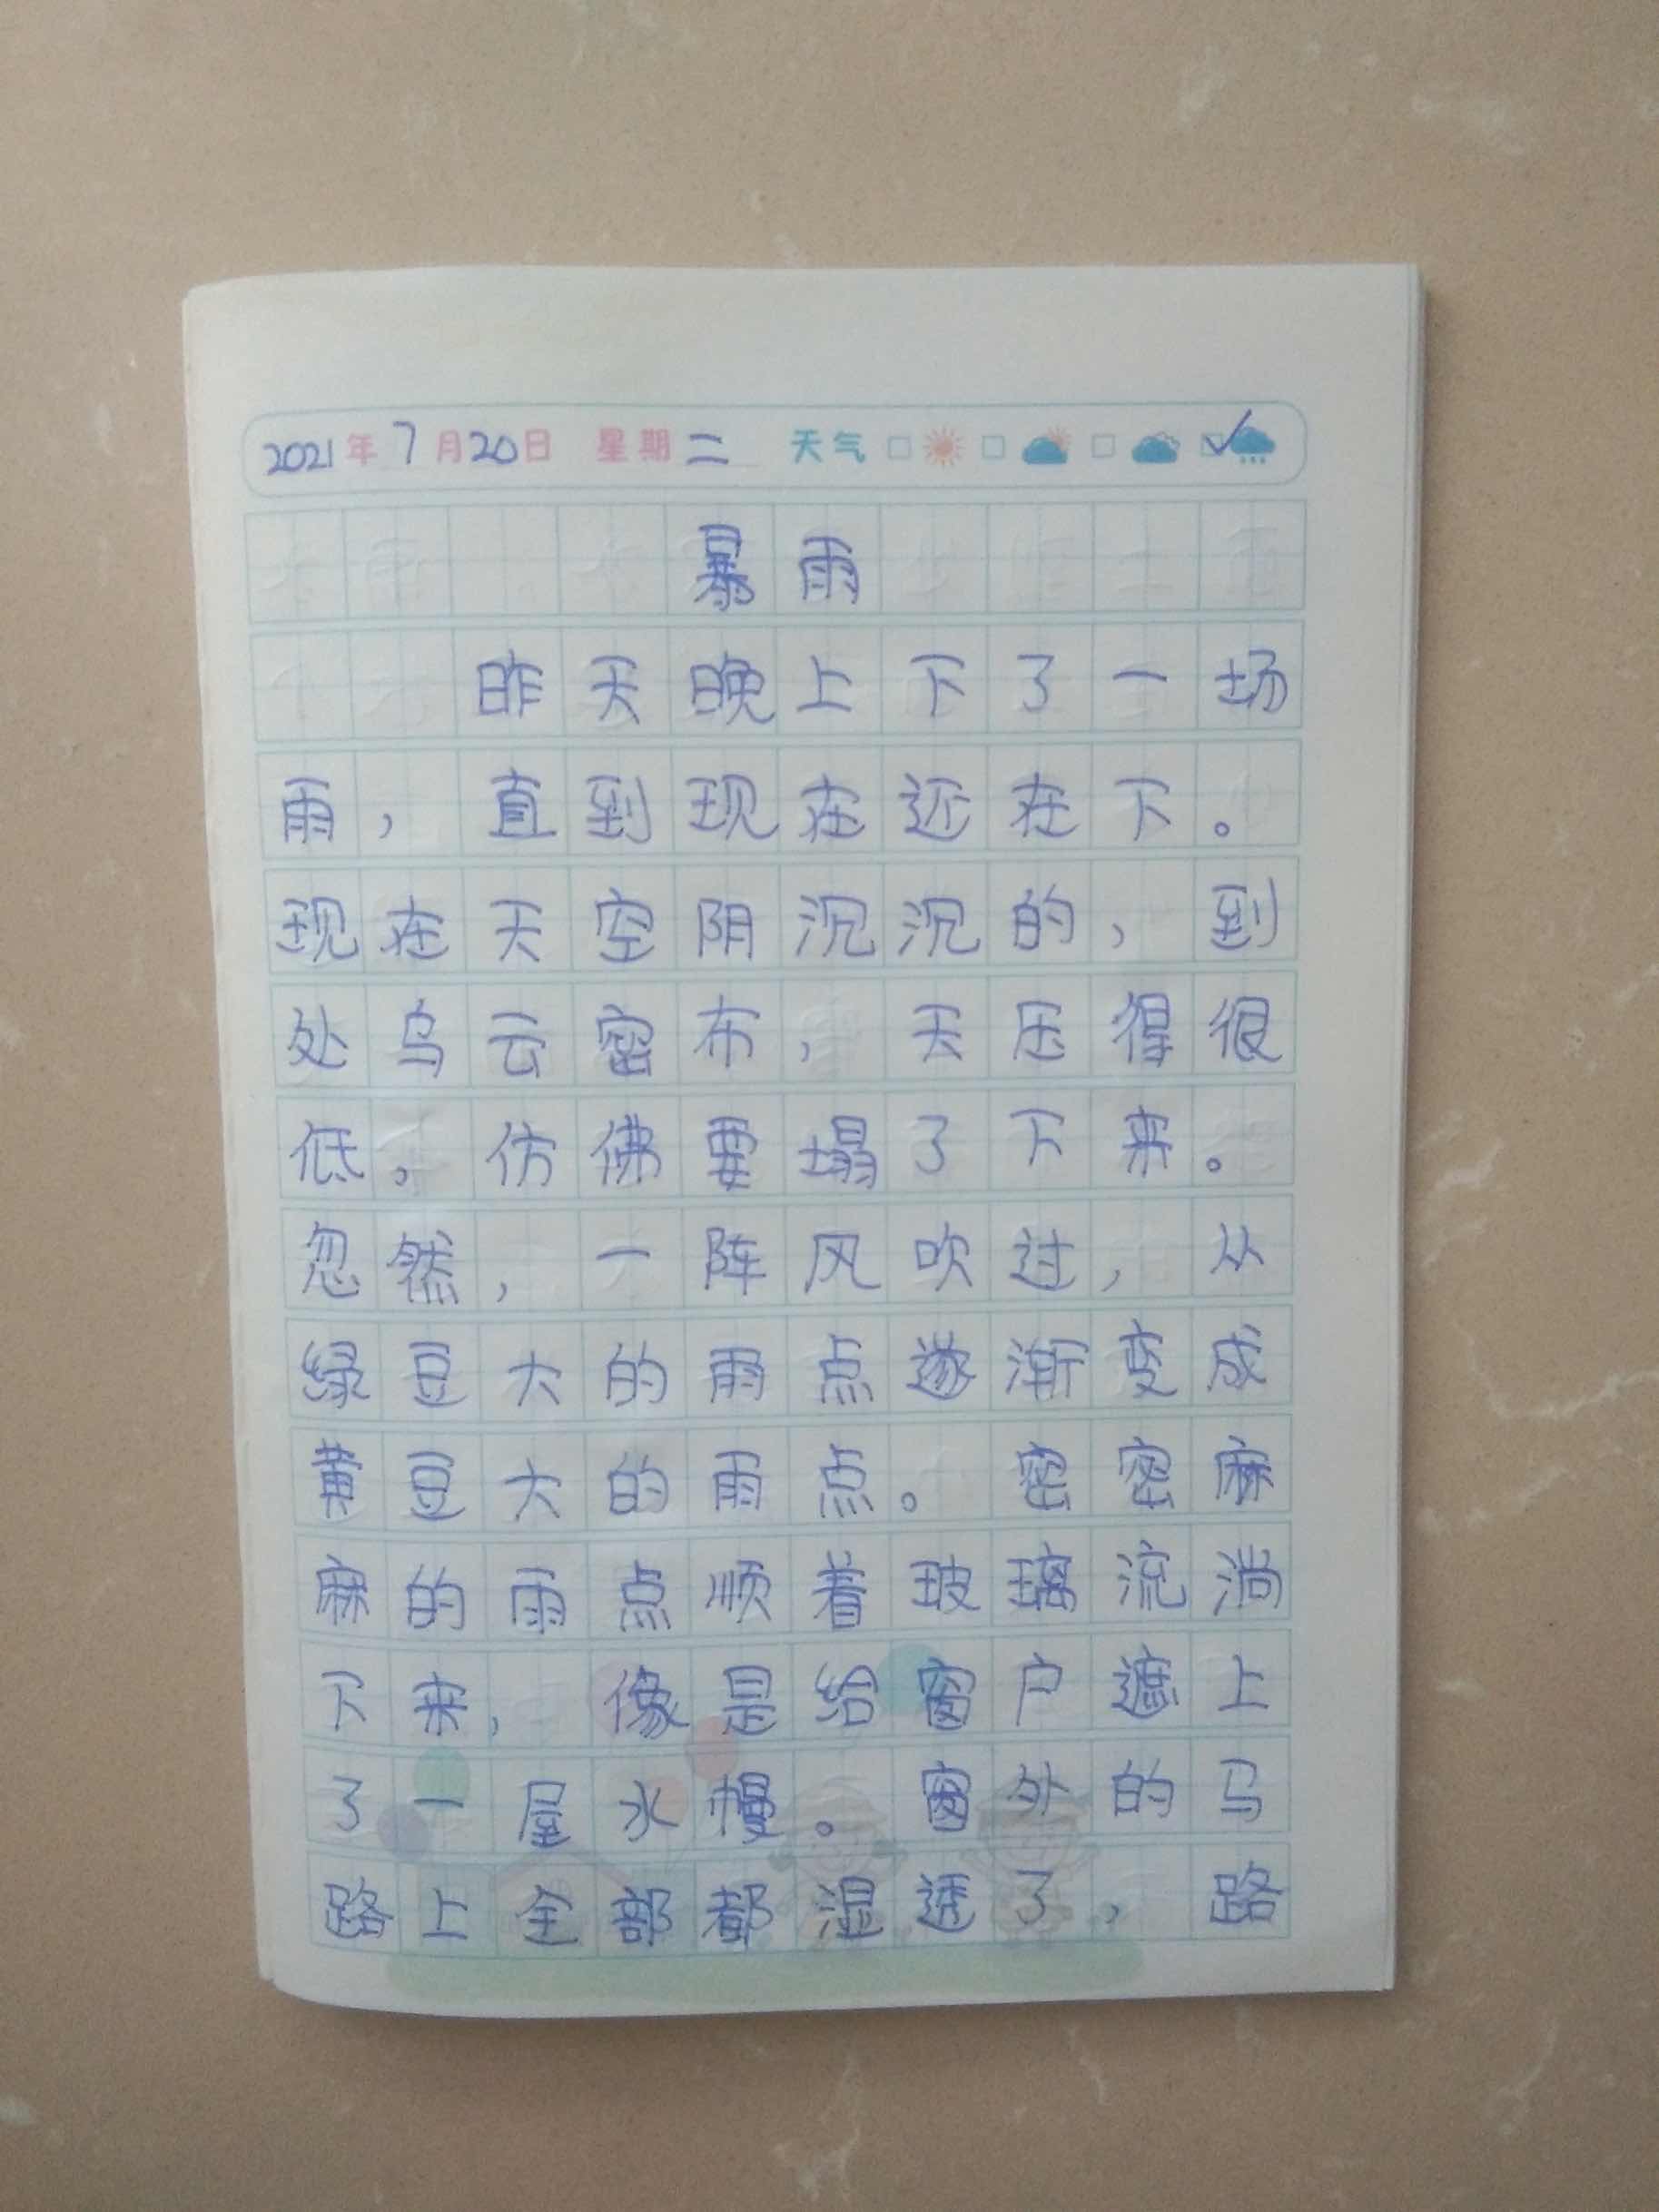 2021年7月20日 星期二 天气
暴雨
昨天晚上下了一场
雨，直到现在还在下。
现在天空阴沉沉的，到
处乌云密布，天压得很
低，仿佛要塌了下来。
忽然，一阵风吹过，从
绿豆大的雨点遂渐变成
黄豆大的雨点。密密麻
麻的雨点顺着玻璃流淌
下来，像是给窗户遮上
了一层水幔。窗外的马
路上全部都湿透了，路